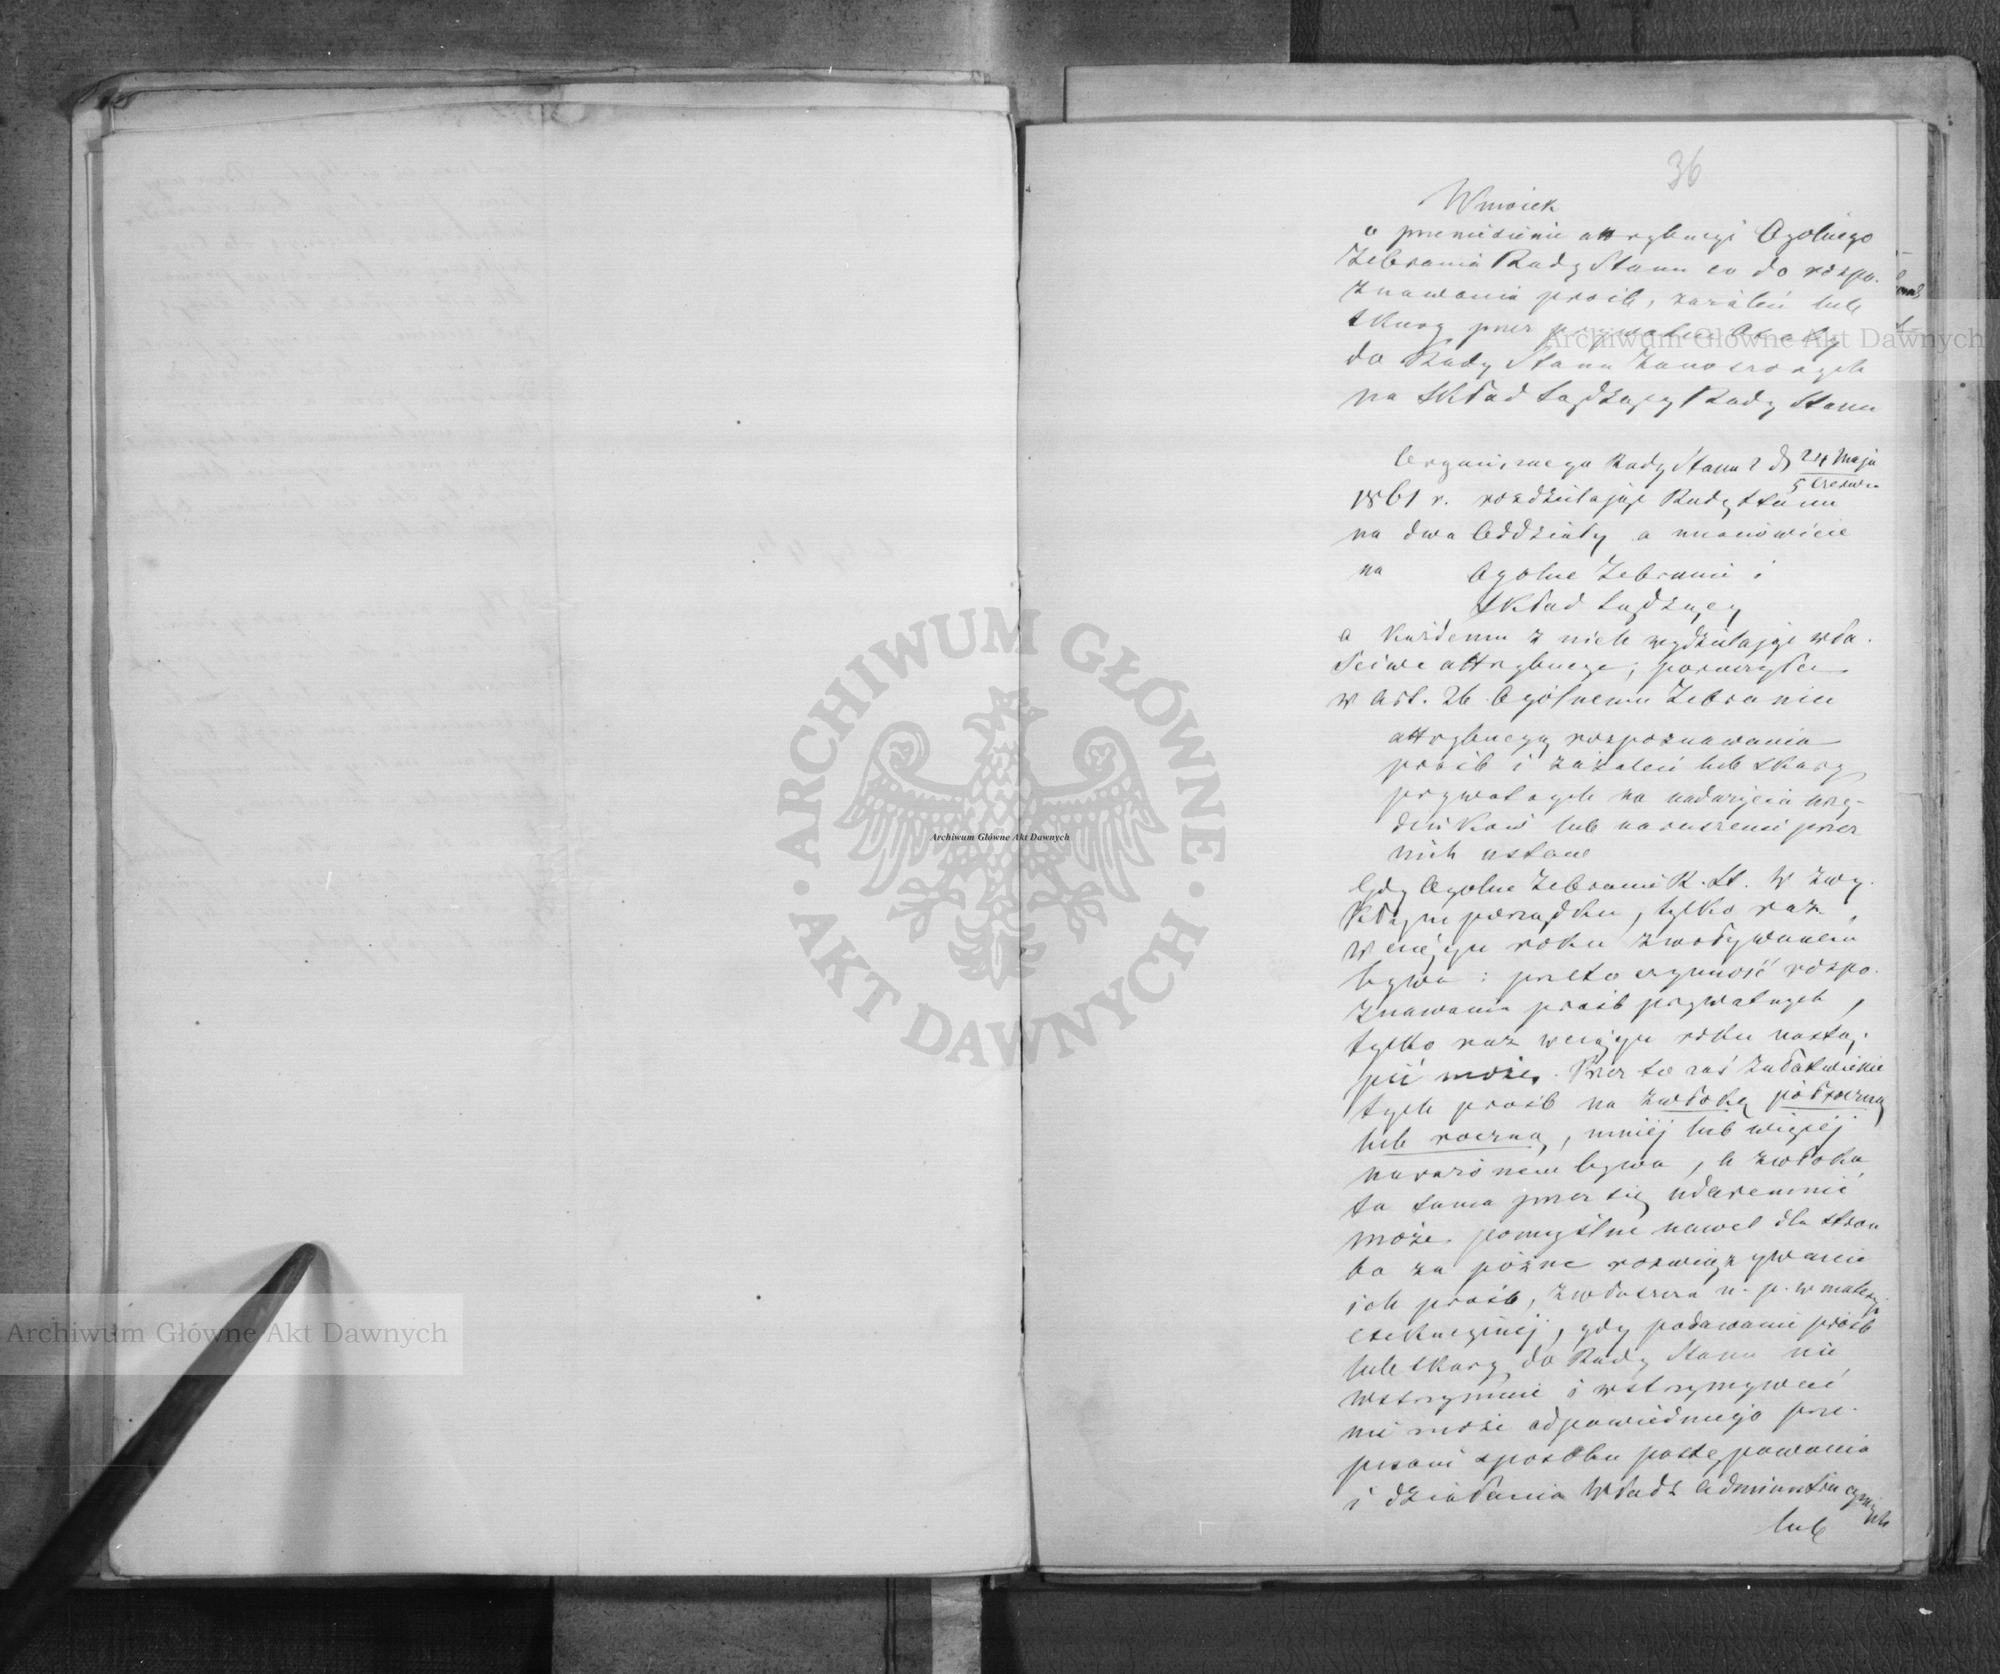 36
Wniosek
o przeniesienie attrybucyi Ogólnego
Zebrania Rady Stanu co do rozpo-
znawania próśb, zażaleń lub
skarg przez prywatne Osoby
do Rady Stanu zanoszonych
na Skład Sądzący Rady Stanu
Organicznego Rady Stanu z d. 24 Maja
5 Czerwca
1861 r. rozdzielając Radę Stanu
na dwa Oddziały a mianowicie
na Ogólne Zebranie i
Skład Sądzący
a każdemu z nich wydzielając wła-
ściwe attrybucye, poruczyła
w Art. 26 Ogólnemu Zebraniu
attrybucyą rozpoznawania
próśb i zażaleń lub skarg
prywatnych na nadużycia urzę-
dników lub naruszenie przez
nich ustaw
Gdy Ogólne Zebranie R. St. w zwy-
kłym porządku, tylko raz
w ciągu roku zwoływanem
bywa: przeto czynność rozpo-
znawania próśb prywatnych,
tylko raz w ciągu roku nastą-
pić może. Przez to zaś załatwienie
tych próśb na zwłokę półroczną
lub roczną, mniej lub więcej
narażonem bywa, a zwłoka
ta sama przez się udaremnić
może pomyślne nawet dla stron
bo za późne rozwiązywanie
ich próśb, zwłaszcza n. p. w materyi
exekucyjnej, gdy podawanie próśb
lub skarg do Rady Stanu nie
wstrzymuje i wstrzymywać
nie może odpowiedniego prze-
pisom sposobu postępowania
i działania Władz Administracyjnych
lub
Archiwum Główne Akt Dawnych
Archiwum Główne Akt Dawnych
Archiwum Główne Akt Dawnych
ARCHIWUM GŁÓWNE
AKT DAWNYCH